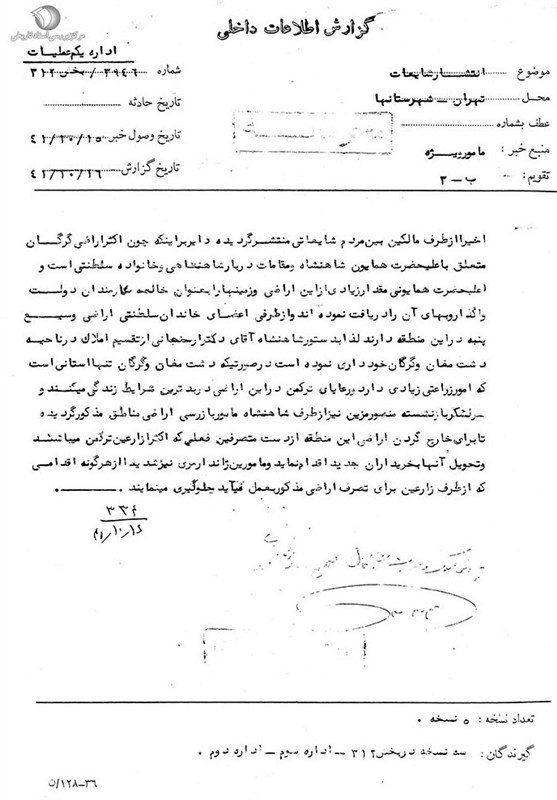 مرکز بررسی اسناد تاریخی
گزارش اطلاعات داخلی
اداره یکم عملیات
موضوع انتشار شایعات
شماره ۳۹۴۶ / بخش ۳۱۲
محل تهران – شهرستانها
تاریخ حادثه
عطف بشماره
تاریخ وصول خبر ۴۱/۱۰/۱۵
منبع خبر : مامور ویژه
تاریخ گزارش ۴۱/۱۰/۱۶
تقویم : ب – ۳
اخیرا از طرف مالکین بین مردم شایعاتی منتشر گردیده دایر براینکه چون اکثر اراضی گرگان
متعلق باعلیحضرت همایون شاهنشاه و مقامات دربار شاهنشاهی و خانواده سلطنتی است و
اعلیحضرت همایونی مقدار زیادی از این اراضی و زمینها را بعنوان خالصه بکارمندان دولت
واگذار و بهای آن را دریافت نموده اند و از طرفی اعضای خاندان سلطنتی اراضی وسیع
پنبه در این منطقه دارند لذا بدستور شاهنشاه آقای دکتر ارسنجانی از تقسیم املاک در ناحیه
دشت مغان و گرگان خودداری نموده است در صورتیکه دشت مغان و گرگان تنها استانی است
که امور زراعتی زیادی دارد و رعایای ترکمن در این اراضی در بدترین شرایط زندگی میکنند و
سرلشگر بازنشسته منصور مزین نیز از طرف شاهنشاه مامور بازرسی اراضی مناطق مذکور گردیده
تا برای خارج کردن اراضی این منطقه از دست متصرفین فعلی که اکثر زارعین ترکمن میباشند
و تحویل آنها بخریداران جدید اقدام نماید و مامورین ژاندارمری نیز شدیدا از هرگونه اقدامی
که از طرف زارعین برای تصرف اراضی مذکور بعمل میآید جلوگیری مینمایند .
۳۳۴
تعداد نسخه : ۵ نسخه .
گیرندگان : سه نسخه در بخش ۳۱۲ – اداره سوم – اداره دوم .
۱۲۸-۳۶/ن